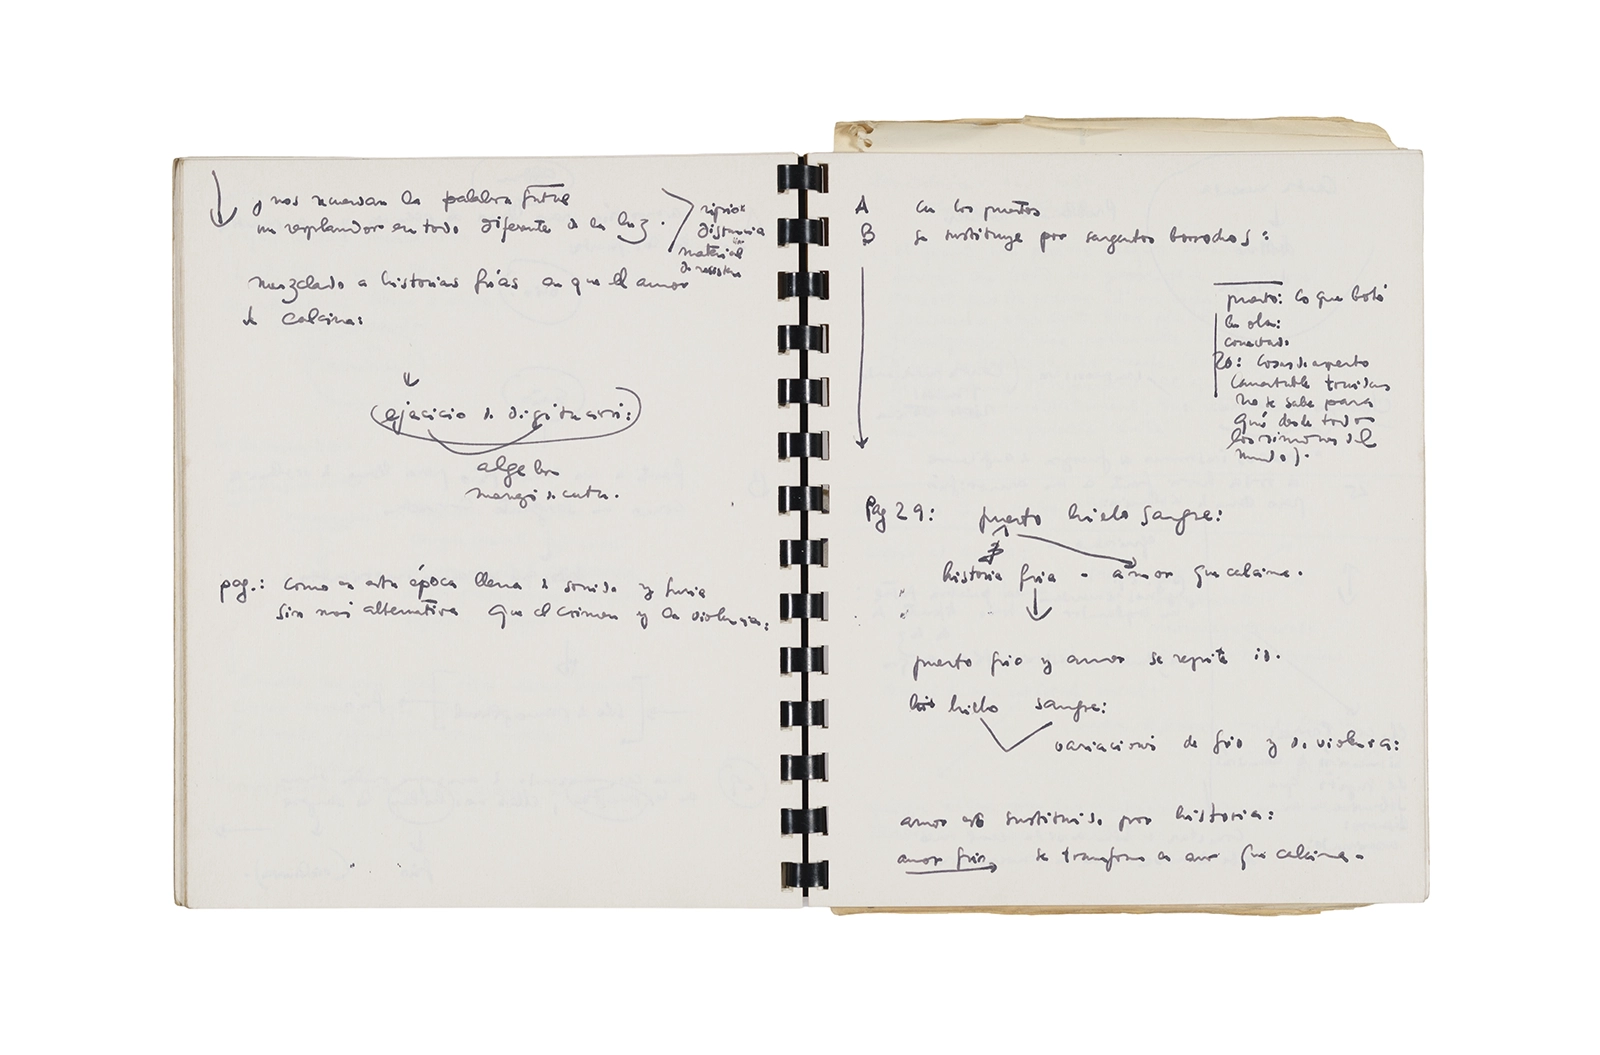 y nos recuerdan la palabra
un resplandor en todo diferente de la luz.
distancia
material
mezclado a historias frías en que el amor
se calcina:
(ejercicio de digitación:)
algebra
pag.: como en esta época llena de sonido y furia
sin más alternativa que el crimen y la violencia:
A en los puertos
B se sustituye por sargentos borrachos:
puerto: lo que botó
la ola:
conectado
20: cosas de aspecto
lamentable traídas
no se sabe para
qué desde todos
los del
mundo).
Pag 29: puerto hielo sangre:
historia fría - amor que calcina.
puerto frío y amor se repite
hielo sangre:
variaciones de frío y de violencia:
amor es sustituido por historia:
amor frío se transforma en amor que calcina.